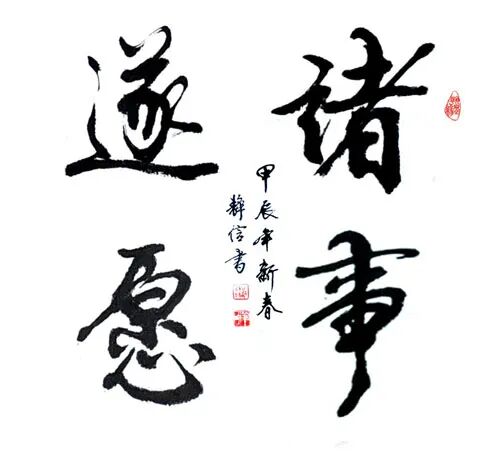 诸事
遂愿
甲辰年新春
信书